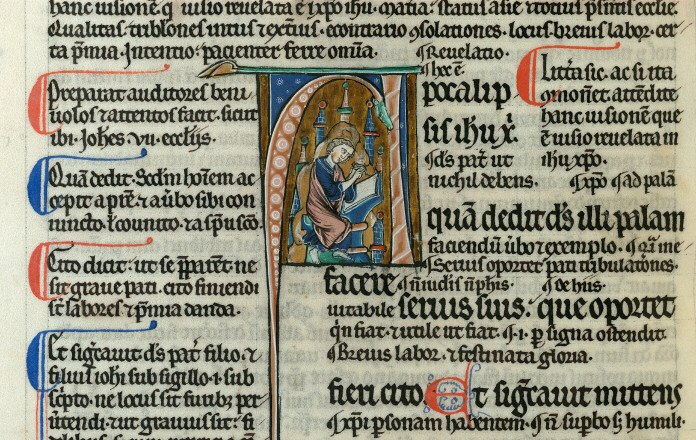 hanc uisionē q̄ uisio reuelata ē ixpo ihu. matia. status asie ⁊ totius psentis ecclie
Qualitas tribłones intus ⁊ extius. econtrario ɔsolationes. locus. breuis labor. cer
ta p̄mia. Intentio. pacienter ferre omīa.
Preparat auditores beni
uolos ⁊ attentos facit. sicut
ibi. Johes. vii. ecclijs.
Quā dedit. Scdm hoiem ac
cepit a pre. ⁊ a ubo sibi con
iuncto. ł counito. ⁊ a spu sco.
Cito dicit. ut se pparēt. ne
sit graue pati. cito finiendi
st labores ⁊ p̄mia danda.
Et sigficauit ds pat filio. ⁊
filius iohi sub sigillo .i. sub
scpto. ne locus sit
utendi. ut grauius sit. si
¶Reuelatio.
¶hec ē.
A
pocalip
sis ihu xp̄i.
¶ds pat ut
nichil debens.
Litta sic. ac si ita
monet. attendite
hanc uisionē que
ē uisio reuelata in
ihu xpo.
¶xpo ¶ad palā
quā dedit ds illi palam
faciendū ubo ⁊ exemplo.
¶Seruis oportet pati tribulatōnes.
facere ¶n iudis n phis. ¶de hiis.
uitabile seruis suis. que oportet
qn fiat. ⁊ utile ut fiat. ¶.i. p signa ostendit.
¶Breuis labor. ⁊ festinata gloria.
fieri cito. Et sigficauit mittens
¶xpi psonam habentem. ¶n supbo s; humili.